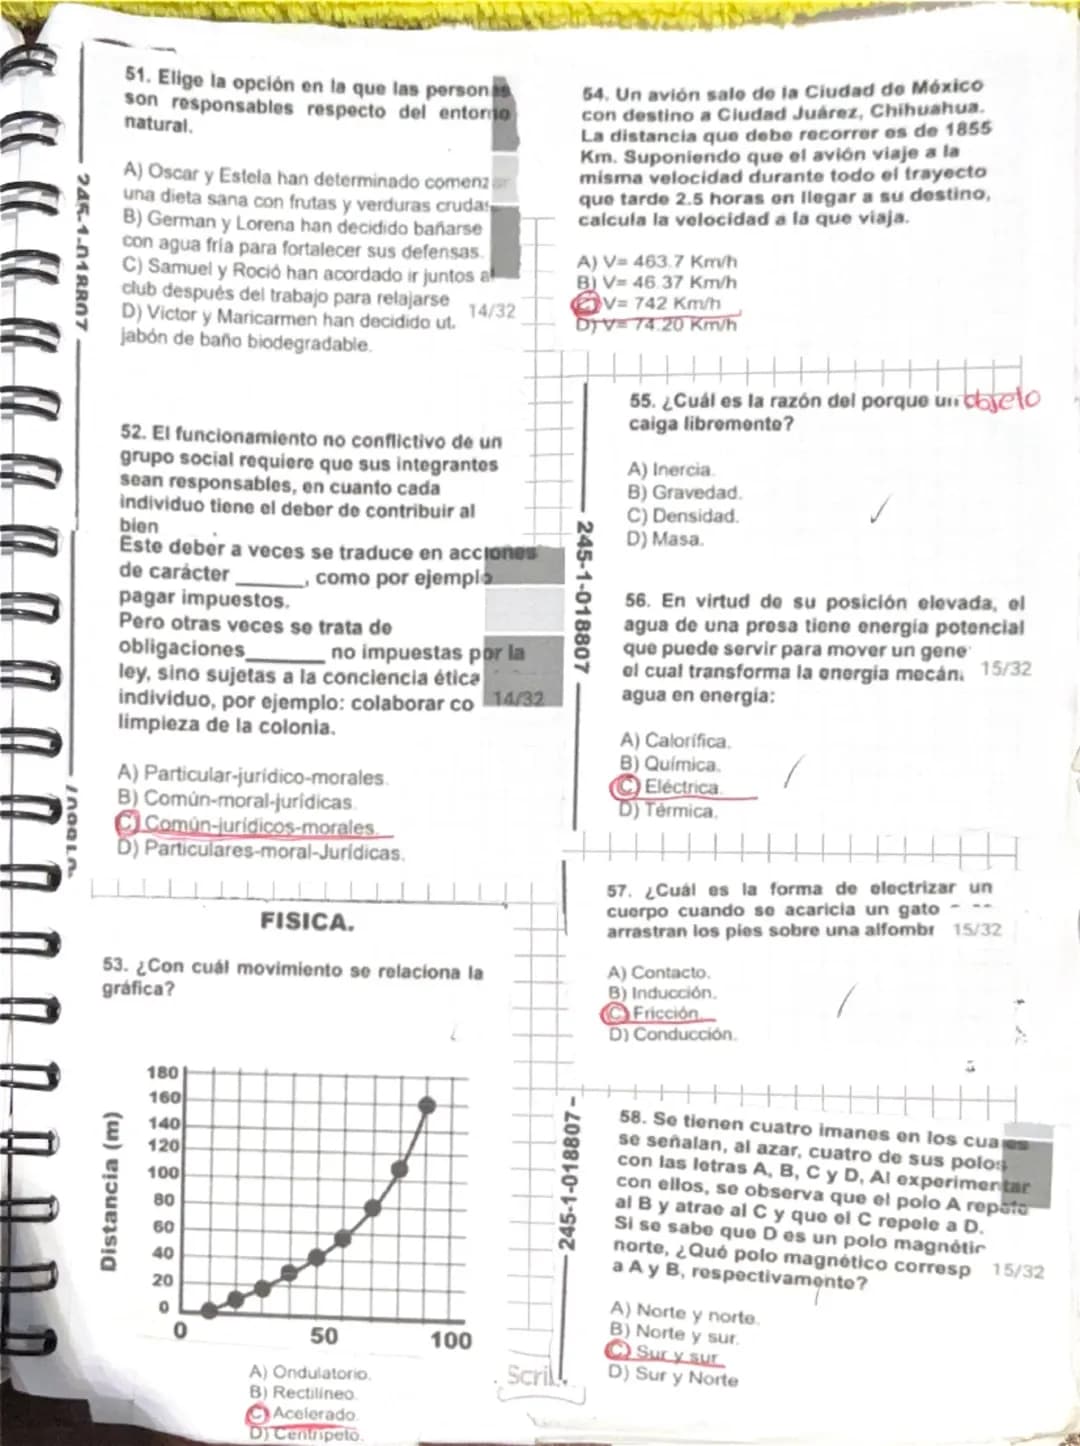 51. Elige la opción en la que las personas
son responsables respecto del entorno
natural.
A) Oscar y Estela han determinado comenzar
una dieta sana con frutas y verduras crudas
B) German y Lorena han decidido bañarse
con agua fría para fortalecer sus defensas.
C) Samuel y Roció han acordado ir juntos al
club después del trabajo para relajarse
14/32
D) Victor y Maricarmen han decidido ut.
jabón de baño biodegradable.
245-1-018807
52. El funcionamiento no conflictivo de un
grupo social requiere que sus integrantes
sean responsables, en cuanto cada
individuo tiene el deber de contribuir al
bien
Este deber a veces se traduce en acciones
de carácter ______, como por ejemplo
pagar impuestos.
Pero otras veces se trata de
obligaciones_______ no impuestas por la
ley, sino sujetas a la conciencia ética
individuo, por ejemplo: colaborar co
14/32
limpieza de la colonia.
A) Particular-jurídico-morales.
B) Común-moral-jurídicas.
C) Común-jurídicos-morales.
D) Particulares-moral-Jurídicas.
FISICA.
53. ¿Con cuál movimiento se relaciona la
gráfica?
Distancia (m)
180
160
140
120
100
80
60
40
20
0
0 50 100
A) Ondulatorio.
B) Rectilíneo.
C) Acelerado.
D) Centrípeto.
54. Un avión sale de la Ciudad de México
con destino a Ciudad Juárez, Chihuahua.
La distancia que debe recorrer es de 1855
Km. Suponiendo que el avión viaje a la
misma velocidad durante todo el trayecto
que tarde 2.5 horas en llegar a su destino,
calcula la velocidad a la que viaja.
A) V= 463.7 Km/h
B) V= 46.37 Km/h
C) V= 742 Km/h
D) V= 74.20 Km/h
55. ¿Cuál es la razón del porque un objeto
caiga libremente?
A) Inercia.
B) Gravedad.
C) Densidad.
D) Masa.
245-1-018807
56. En virtud de su posición elevada, el
agua de una presa tiene energía potencial
que puede servir para mover un gene
el cual transforma la energía mecán.
15/32
agua en energía:
A) Calorífica.
B) Química.
C) Eléctrica.
D) Térmica.
57. ¿Cuál es la forma de electrizar un
cuerpo cuando se acaricia un gato
arrastran los pies sobre una alfombr
15/32
A) Contacto.
B) Inducción.
C) Fricción.
D) Conducción.
245-1-018807
58. Se tienen cuatro imanes en los cuales
se señalan, al azar, cuatro de sus polos
con las letras A, B, C y D, Al experimentar
con ellos, se observa que el polo A repele
al B y atrae al C y que el C repele a D.
Si se sabe que D es un polo magnétic
norte, ¿Qué polo magnético corresp
15/32
a A y B, respectivamente?
A) Norte y norte.
B) Norte y sur.
C) Sur y sur
D) Sur y Norte